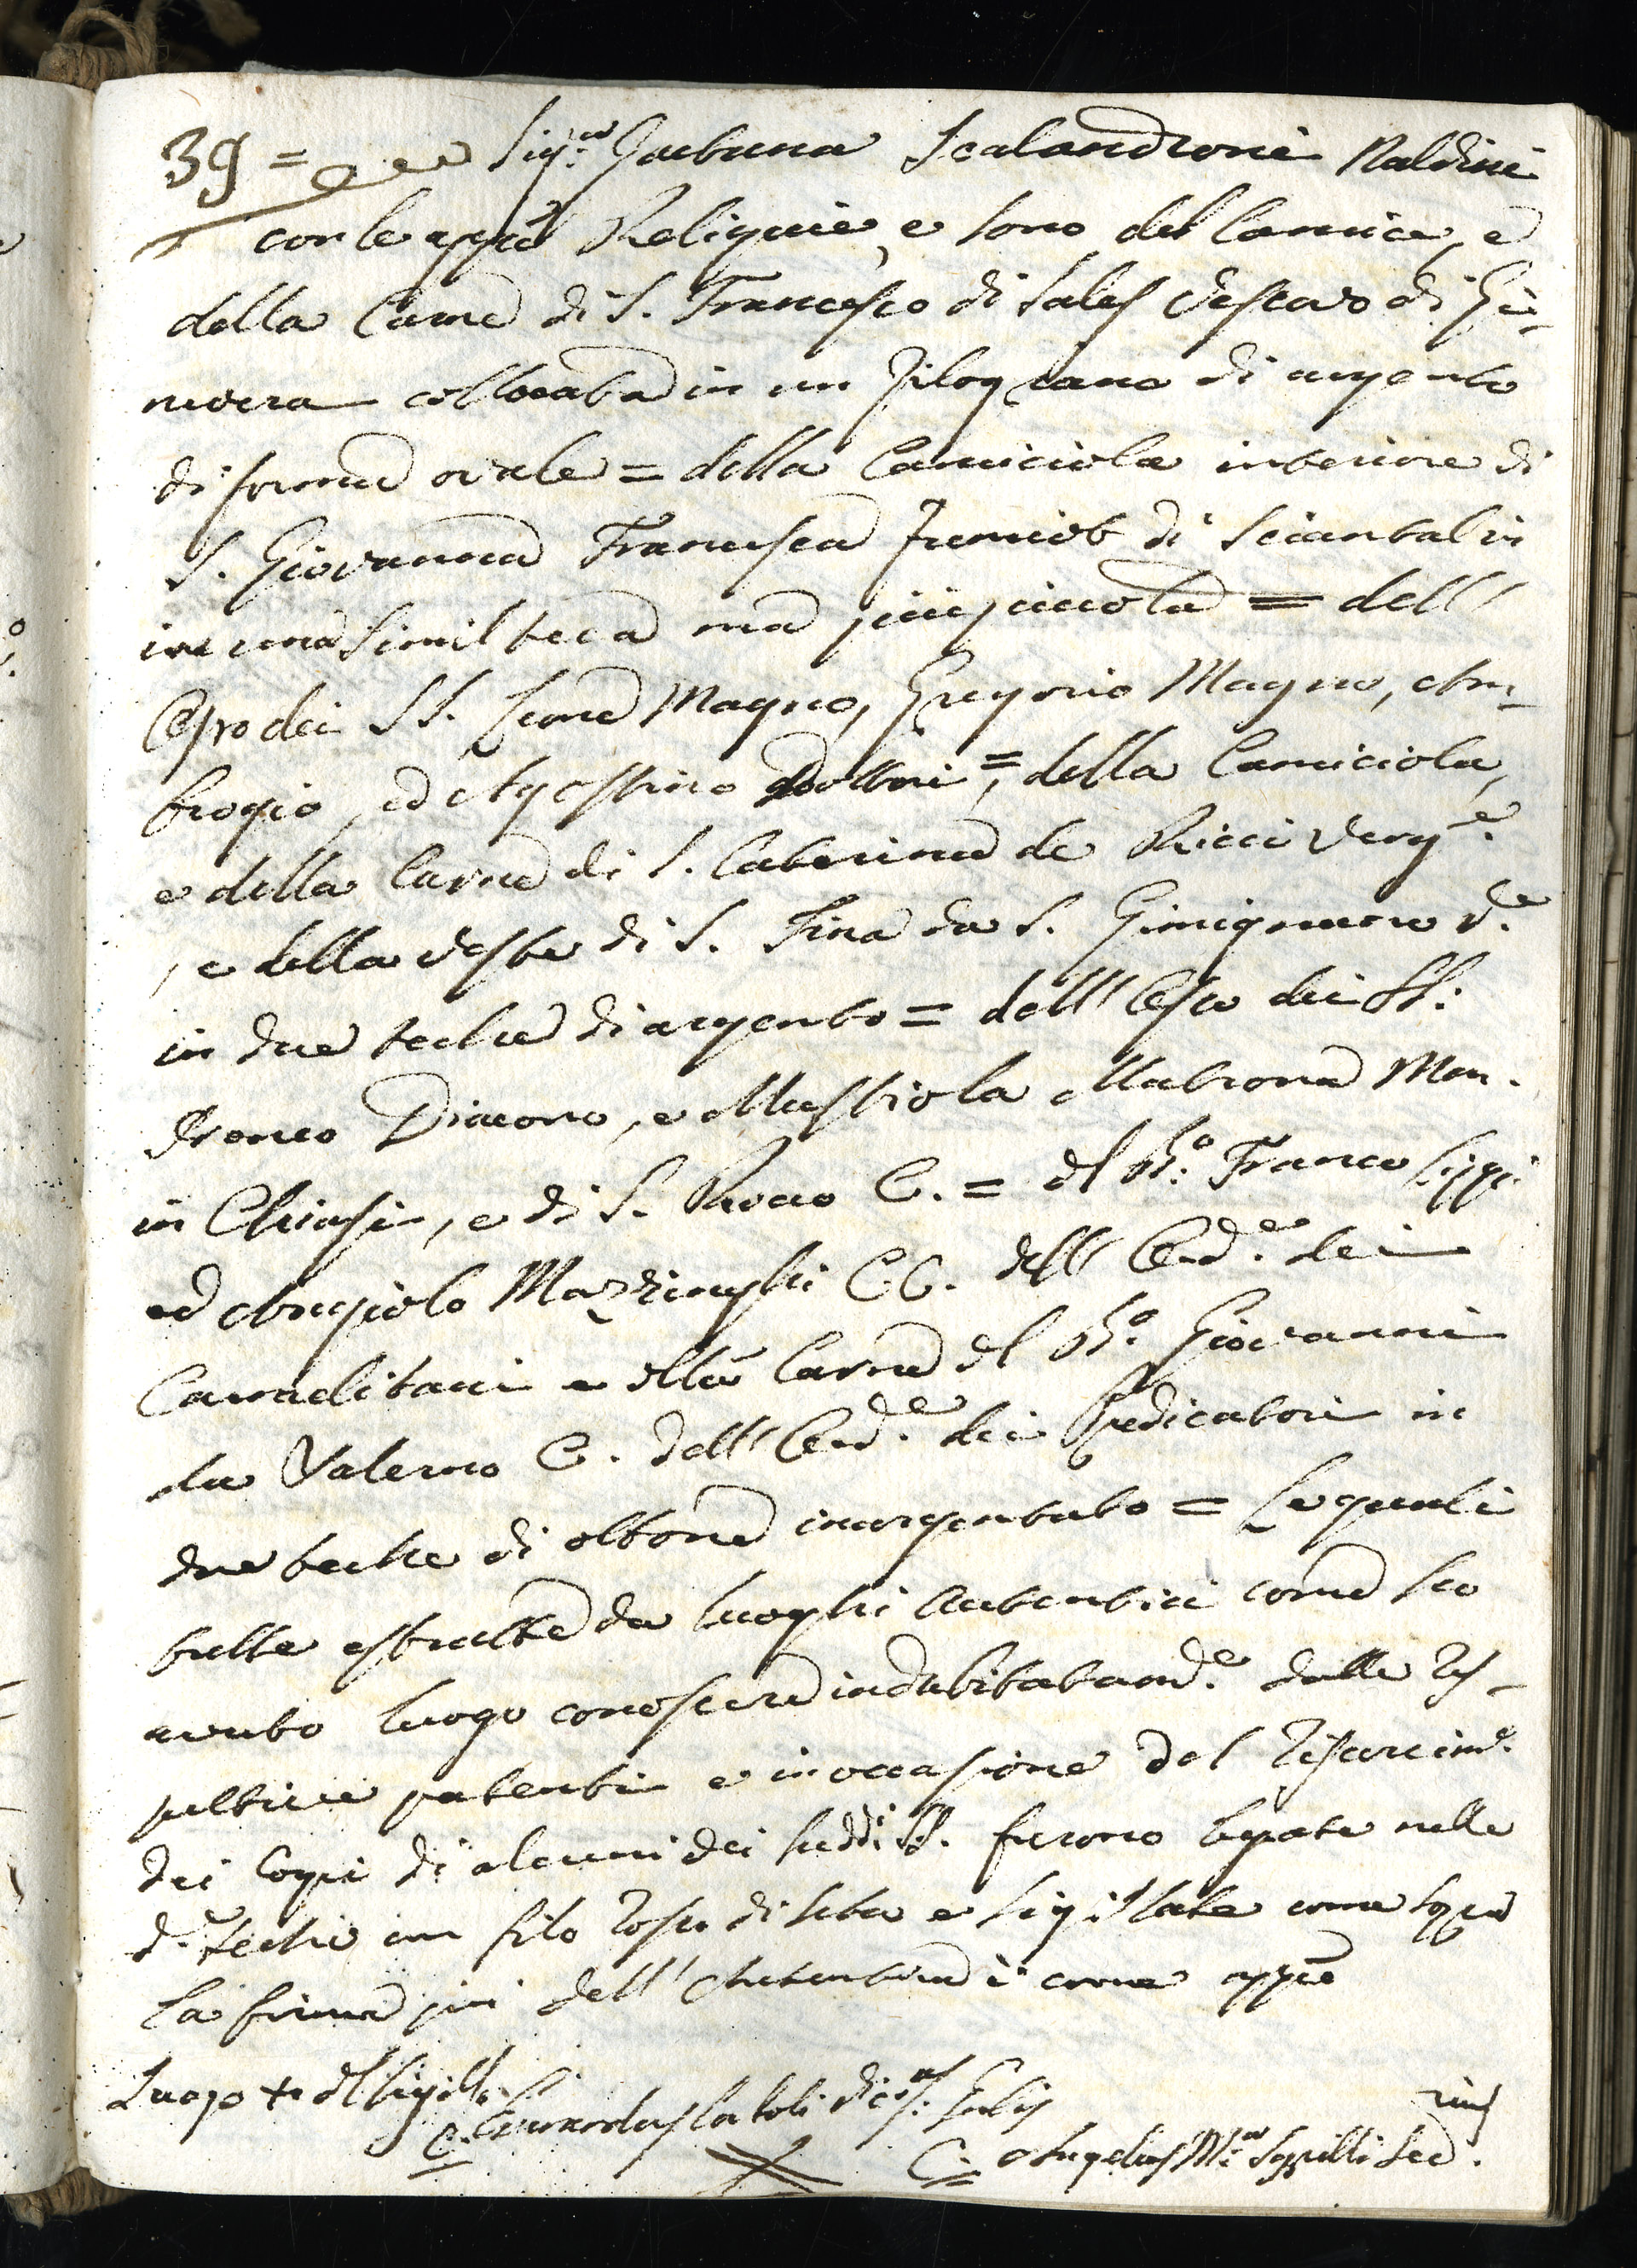 39 = Sig.ra Gaetana Scalandroni Naldini
con le appiè Reliquie, e sono del Camice, e
della Carne di S. Francesco di Sales Vescovo di Gi-
nevra collocata in un filograno di argento
di forma ovale = della Camiciola interiore di
S. Giovanna Francesca Fremiot di Sciantal in
in una simil teca ma più piccola = dell'
Osso dei SS. Leone Magno, Gregorio Magno, Am-
brogio, ed Agostino Dottori =, della Camiciola,
e della Carne di S. Caterina de Ricci Verg.e
, e della Veste di S. Fina da S. Gimignano V.e
in due teche di argento = dell'Osso dei SS.
Ireneo Diacono, e Mustiola Matrona Mar.
in Chiusi, e di S. Rocco C. = del B.o Franco Lippi
ed Angiolo Mazzinghi CC. dell'Ord.e dei
Carmelitani e della Carne del B.o Giovanni
da Salerno C. dell'Ord.e dei Predicatori in
due teche di ottone inargentato = Le quali
tutte estratte da luoghi autentici come seo
avuto luogo conoscere indubitatam.e dalle res-
pettive patenti e in occasione del risarcim.o
dei Corpi di alcuni dei sudd.i SS. furono legate nelle
d.e teche con filo rosso di seta e sigillate come sopra
la firma poi dell'Autentica è come appiè
Luogo + del Sigillo
C. Angelus M.a Sec.